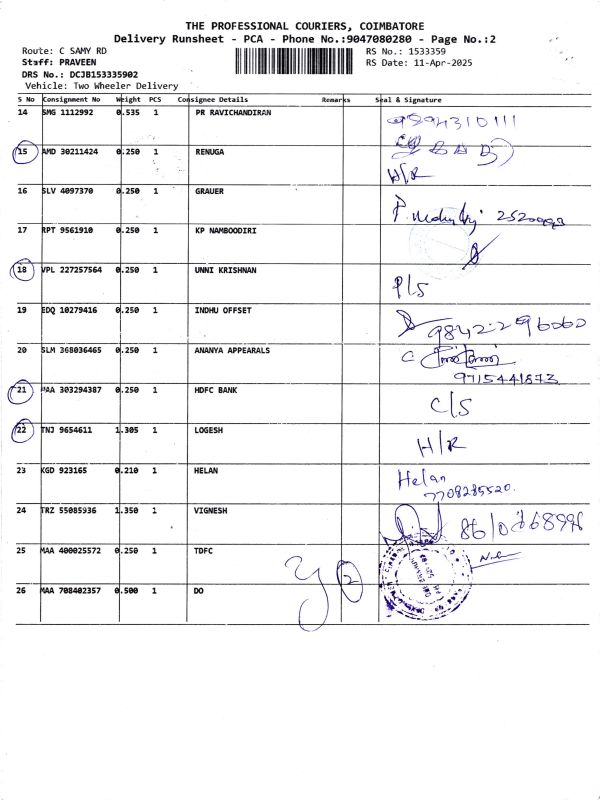 THE PROFESSIONAL COURIERS, COIMBATORE
Delivery Runsheet - PCA - Phone No.:9047080280 - Page No.:2
Route: C SAMY RD
RS No.: 1533359
Staff: PRAVEEN
RS Date: 11-Apr-2025
DRS No.: DCJB153335902
Vehicle: Two Wheeler Delivery
S No Consignment No Weight PCS Consignee Details Remarks Seal & Signature
14 SMG 1112992 0.535 1 PR RAVICHANDIRAN
9894310111
15 AMD 30211424 0.250 1 RENUGA H/R
16 SLV 4097370 0.250 1 GRAUER
17 RPT 9561910 0.250 1 KP NAMBOODIRI
18 VPL 227257564 0.250 1 UNNI KRISHNAN P/S
19 EDQ 10279416 0.250 1 INDHU OFFSET 98422 96060
20 SLM 368036465 0.250 1 ANANYA APPEARALS
9715441873
21 MAA 303294387 0.250 1 HDFC BANK C/S
22 TNJ 9654611 1.305 1 LOGESH H/R
23 KGD 923165 0.210 1 HELAN Helan
7708285520.
24 TRZ 55085936 1.350 1 VIGNESH
25 MAA 400025572 0.250 1 TDFC
2
26 MAA 708402357 0.500 1 DO